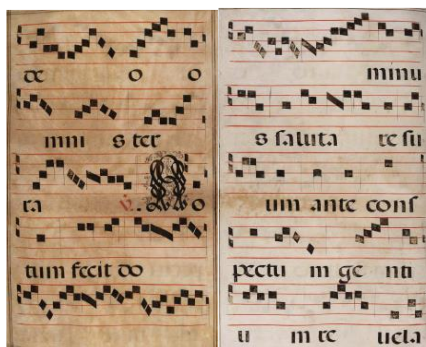 de o o
mni s ter
ra V. N o
tum fecit do
minu
s saluta re su
um ante cons
pectu m ge nti
u m re uela